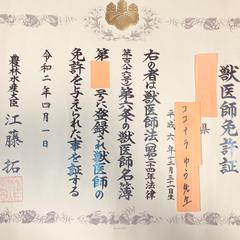 獣医師免許証
県
ココナラ 先生
平成六年
右の者は獣医師法(昭二十四年法律
第百八十六号)第六条の獣医師名簿
第 号に登録され獣医師の
免許を与えられた事を証する
令和二年四月一日
農林水産大臣 江藤 拓